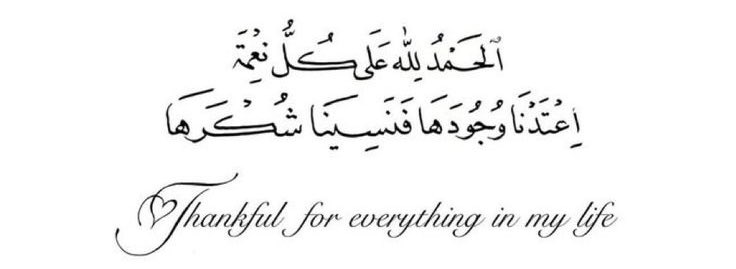 الحَمْدُ لِلّٰه عَلَى كُلُّ نِعْمَة
اِعْتَدْنَا وُجُودَهَا فَنَسِينَا شُكْرَهَا
Thankful for everything in my life